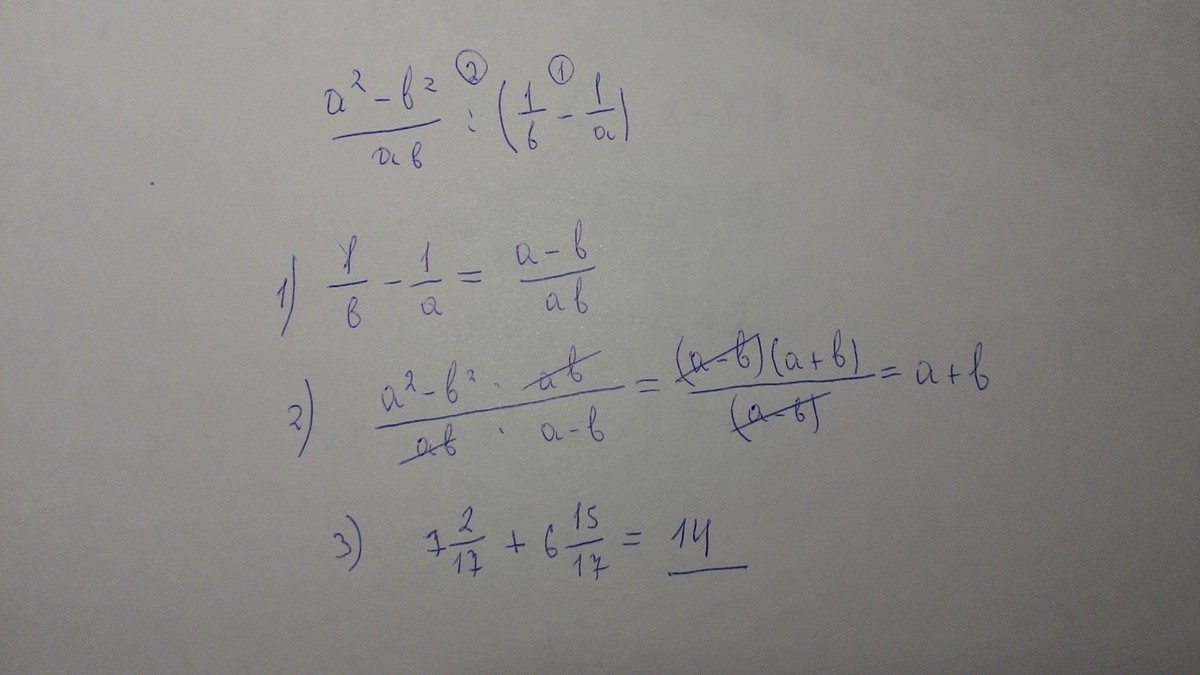 (a² - b²)/(ab) ② : (1/b ① - 1/a)
1) 1/b - 1/a = (a - b)/(ab)
2) (a² - b² · ab)/(ab · a - b) = ((a - b)(a + b))/((a - b)) = a + b
3) 7 2/17 + 6 15/17 = 14